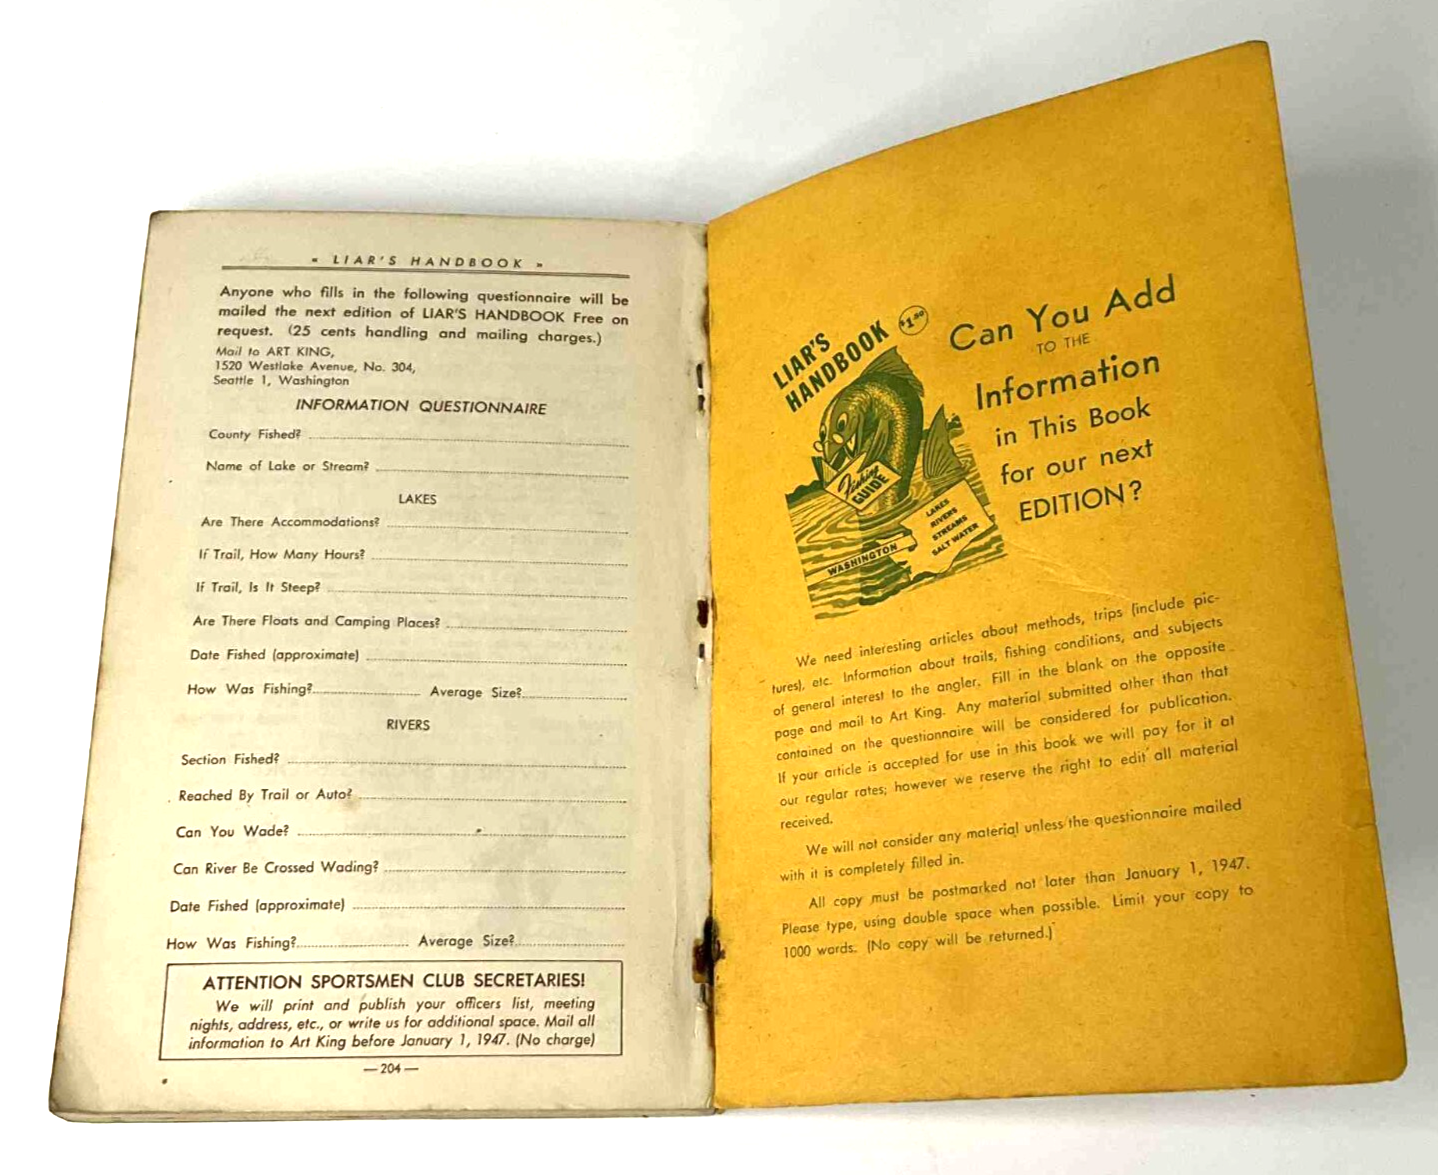 « LIAR'S HANDBOOK »
Anyone who fills in the following questionnaire will be
mailed the next edition of LIAR'S HANDBOOK Free on
request. (25 cents handling and mailing charges.)
Mail to ART KING,
1520 Westlake Avenue, No. 304,
Seattle 1, Washington
INFORMATION QUESTIONNAIRE
County Fished?
Name of Lake or Stream?
LAKES
Are There Accommodations?
If Trail, How Many Hours?
If Trail, Is It Steep?
Are There Floats and Camping Places?
Date Fished (approximate)
How Was Fishing? Average Size?
RIVERS
Section Fished?
Reached By Trail or Auto?
Can You Wade?
Can River Be Crossed Wading?
Date Fished (approximate)
How Was Fishing? Average Size?
ATTENTION SPORTSMEN CLUB SECRETARIES!
We will print and publish your officers list, meeting
nights, address, etc., or write us for additional space. Mail all
information to Art King before January 1, 1947. (No charge)
—204—
LIAR'S
HANDBOOK
$1.50
Fishing
GUIDE
WASHINGTON
LAKES
RIVERS
STREAMS
SALT WATER
Can You Add
TO THE
Information
in This Book
for our next
EDITION?
We need interesting articles about methods, trips (include pic-
tures), etc. Information about trails, fishing conditions, and subjects
of general interest to the angler. Fill in the blank on the opposite
page and mail to Art King. Any material submitted other than that
contained on the questionnaire will be considered for publication.
If your article is accepted for use in this book we will pay for it at
our regular rates; however we reserve the right to edit all material
received.
We will not consider any material unless the questionnaire mailed
with it is completely filled in.
All copy must be postmarked not later than January 1, 1947.
Please type, using double space when possible. Limit your copy to
1000 words. (No copy will be returned.)